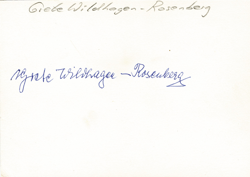 Grete Wildhagen-Rosenberg
Grete Wildhagen-Rosenberg